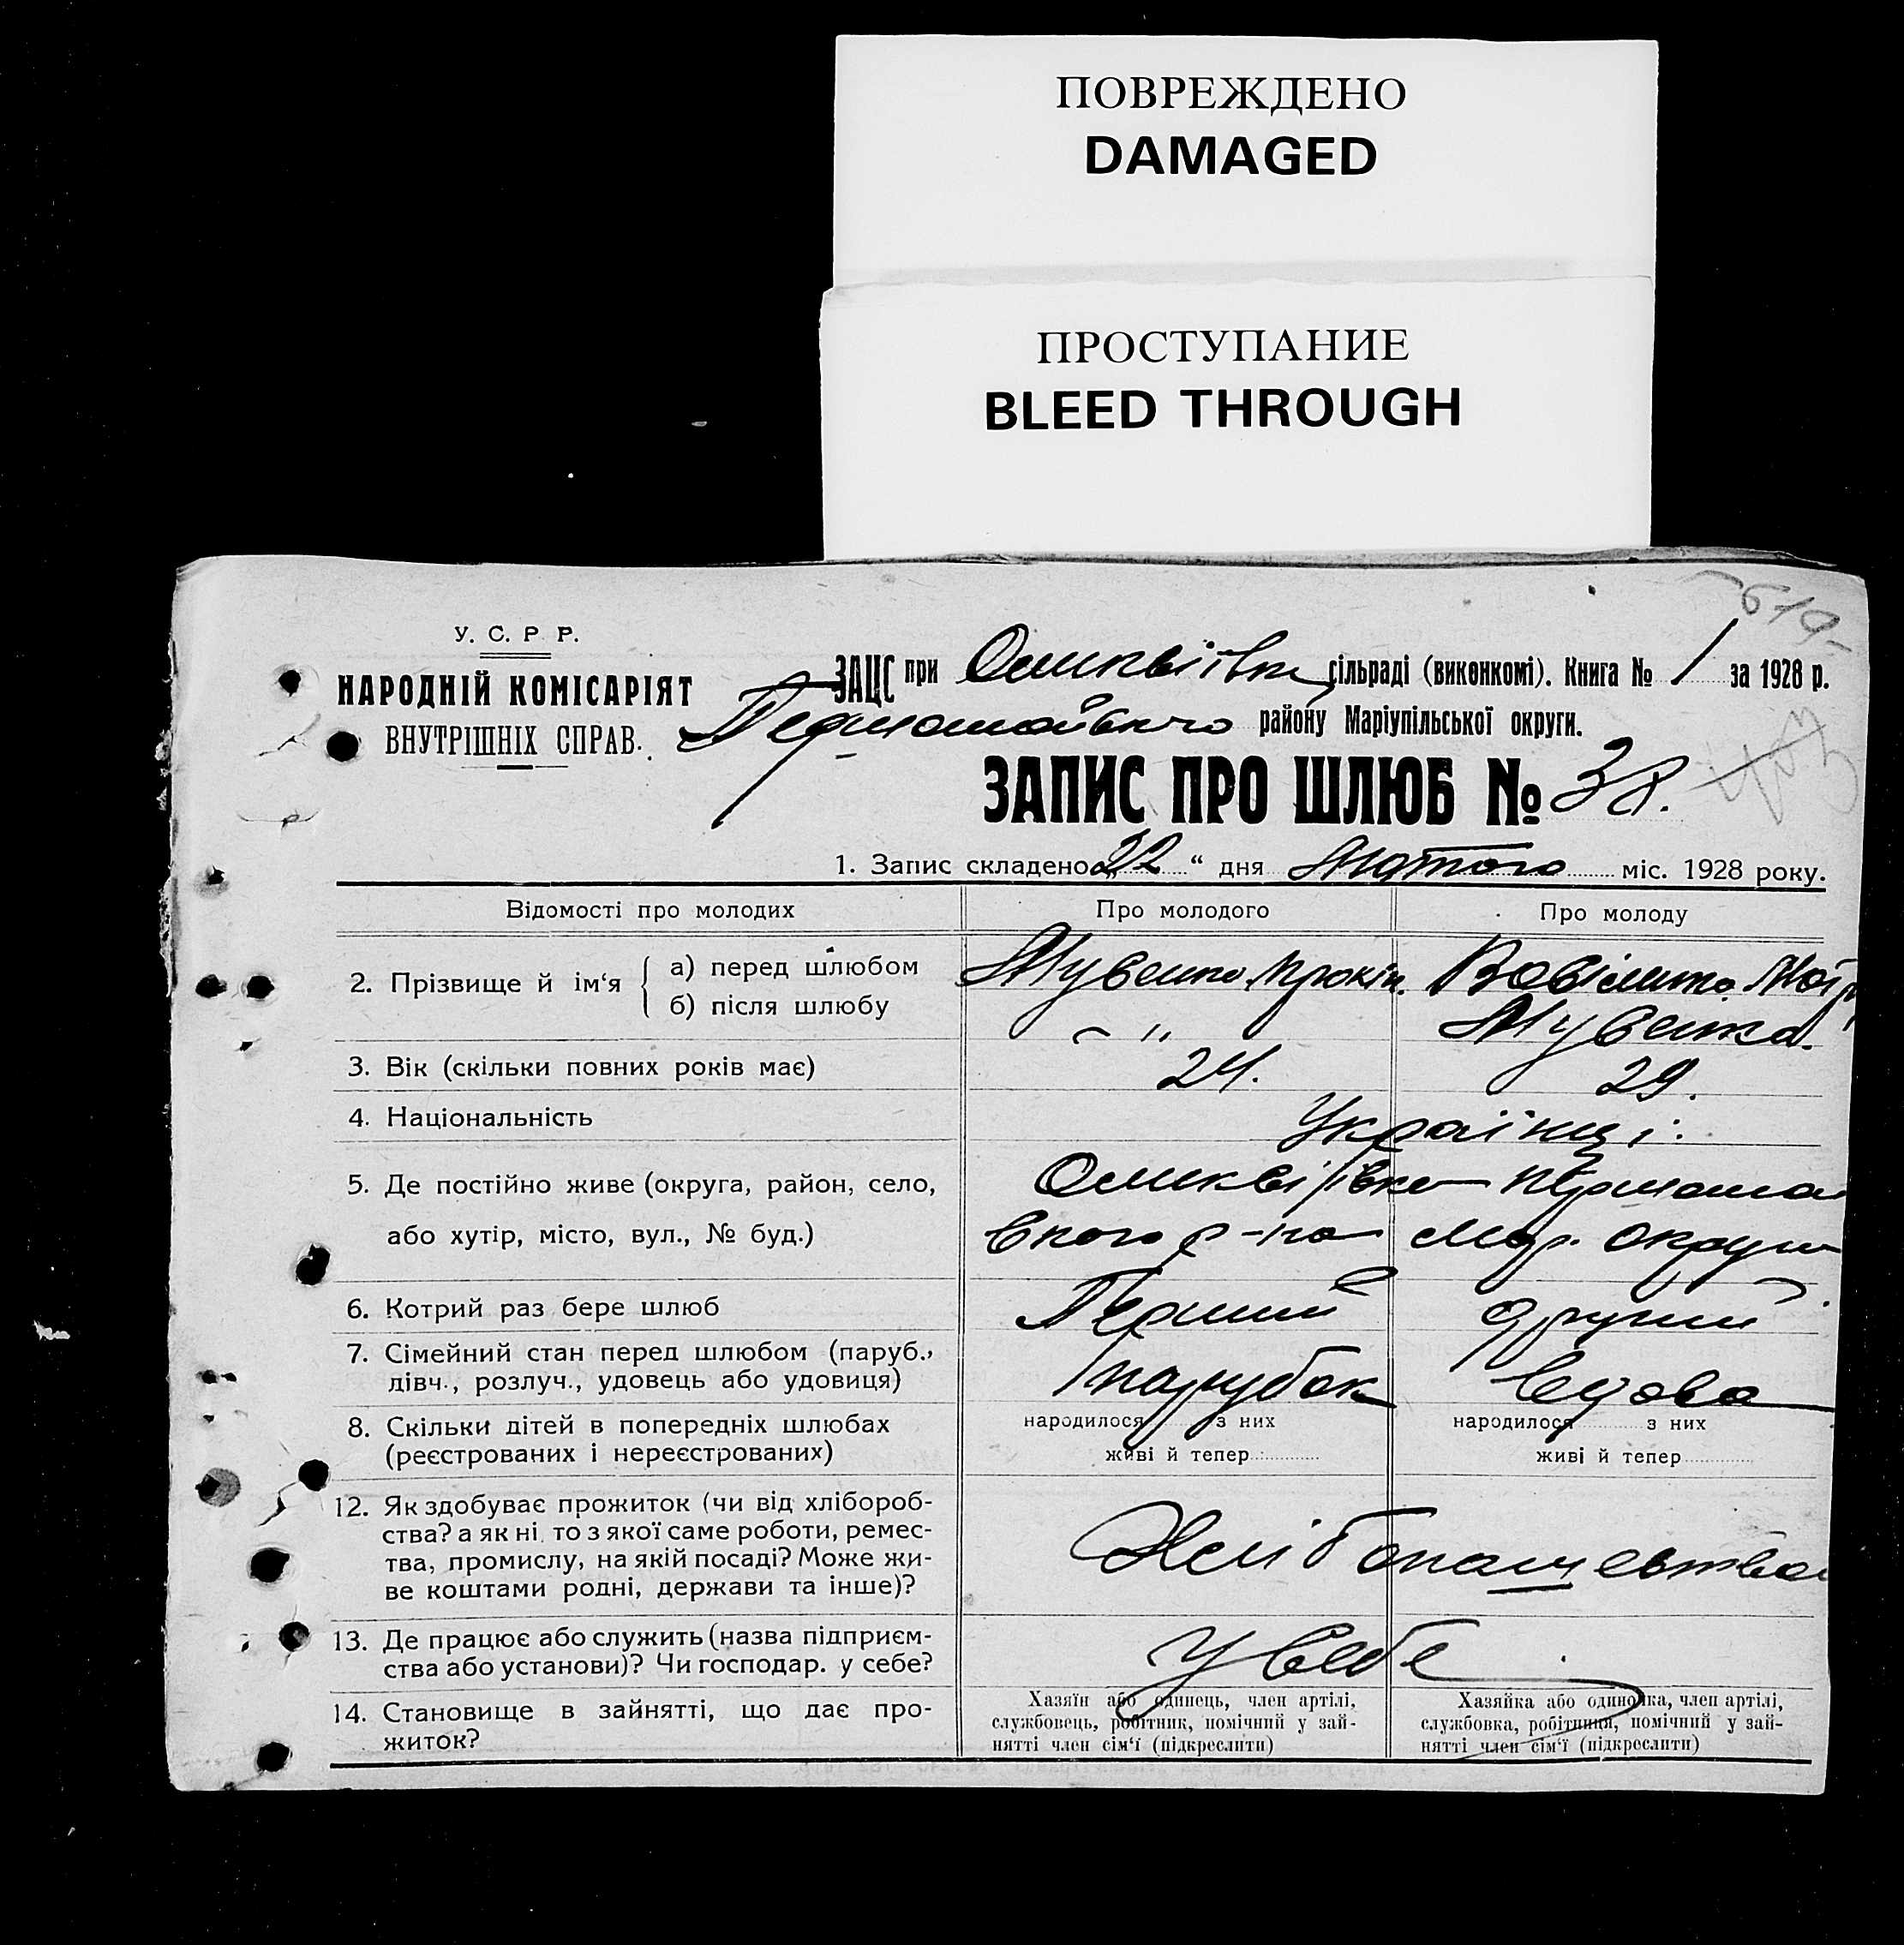 ПОВРЕЖДЕНО
DAMAGED
ПРОСТУПАНИЕ
BLEED THROUGH
619
У. С. Р. Р.
НАРОДНІЙ КОМІСАРІЯТ
ВНУТРІШНІХ СПРАВ.
ЗАЦС при сільраді (виконкомі). Книга № 1 за 1928 р.
району Маріупільської округи.
ЗАПИС ПРО ШЛЮБ № 38.
1. Запис складено „22“ дня Лютого міс. 1928 року.
Відомості про молодих
Про молодого
Про молоду
2. Прізвище й ім‘я { а) перед шлюбом
б) після шлюбу
– " –
3. Вік (скільки повних років має)
24.
29.
4. Національність
Українці.
5. Де постійно живе (округа, район, село,
або хутір, місто, вул., № буд.)
вского р-на Мар. округи
6. Котрий раз бере шлюб
Перший
другий
7. Сімейний стан перед шлюбом (паруб.,
дівч., розлуч., удовець або удовиця)
парубок
вдова
8. Скільки дітей в попередніх шлюбах
(реєстрованих і нереєстрованих)
народилося з них
живі й тепер
народилося з них
живі й тепер
12. Як здобуває прожиток (чи від хлібороб-
ства? а як ні, то з якої саме роботи, ремес-
тва, промислу, на якій посаді? Може жи-
ве коштами родні, держави та інше)?
Хлібопашество
13. Де працює або служить (назва підприєм-
ства або установи)? Чи господар. у себе?
У себе
14. Становище в зайнятті, що дає про-
житок?
Хазяїн або одинець, член артілі,
службовець, робітник, помічний у зай-
нятті член сім‘ї (підкреслити)
Хазяйка або одиночка, член артілі,
службовка, робітниця, помічний у зай-
нятті член сім‘ї (підкреслити)